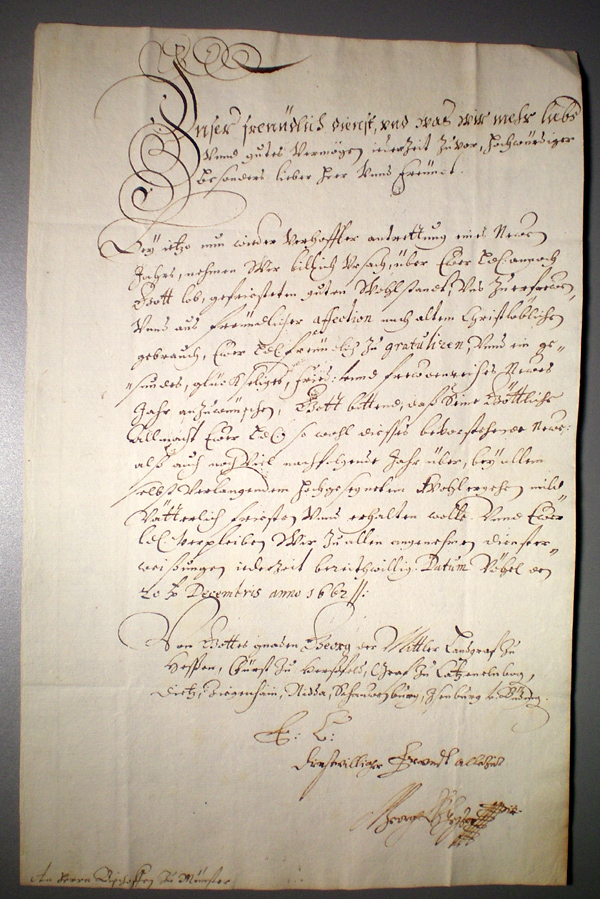 Unser freundlich dienst, und was wir mehr liebs
Unnd gutes Vermögen iederzeit Zuvor, Hochwürdiger
besonders lieber Herr Unnd Freundt.
Bey ietzo nun wieder Verhoffter antrettung eines Newen
Jahrs, nehmen Wir billich Ursach, über Ewer Ld annoch
Gott lob, gefristeten guten Wohlstandt, Uns Zuerfrewen,
Unnd aus freundlicher affection nach altem Christlöblichen
gebrauch, Ewer Ld freundlich Zu gratuliren, Unnd ein ge-
sundes, glückseliges, fried: unnd frewdenreiches Newes
Jahr anzuwünschen, Gott bittend, das Seine Göttliche
Allmacht Ewer Ld so wohl dieses bevorstehende Newe:
als auch noch Viel nachfolgende Jahr über, bey allem
selbst Verlangendem hochgesegnetem Wohlergehen mild
Vätterlich fristen Unnd erhalten wolle. Unnd Ewer
Ld Verpleiben Wir Zu allen angenehmen dienster-
weisungen iederzeit bereithwillig. Datum Vöhel den
Decembris anno 1662
Von Gottes gnaden Georg der Mittler Landgraf Zu
Hessen, Fürst Zu Herßfeld, Graf Zu Catzenelnbog,
Dietz, Ziegenhain, Nidda, Schauenburg, Isenburg u. Büding.
E. L.
dienstwilliger Freundt allezeit
Georg
An Herrn Bischoffen Zu Münster